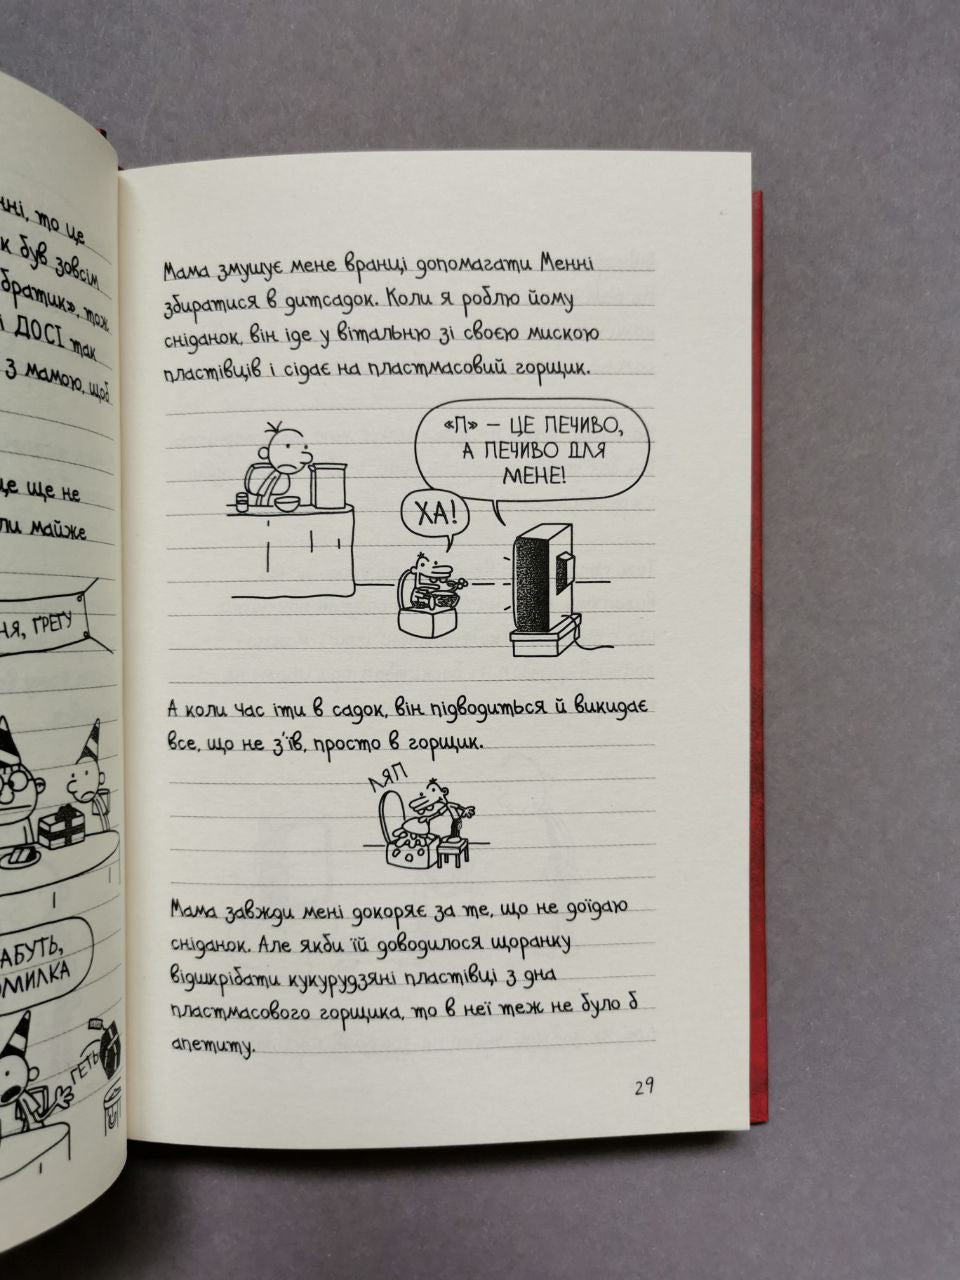 нні, то це
к був зовсім
братик», тож
і ДОСІ так
з мамою, щоб
це ще не
ли майже
НЯ, ҐРЕГУ
АБУТЬ,
ОМИЛКА
ГЕТЬ
Мама змушує мене вранці допомагати Менні
збиратися в дитсадок. Коли я роблю йому
сніданок, він іде у вітальню зі своєю мискою
пластівців і сідає на пластмасовий горщик.
«П» – ЦЕ ПЕЧИВО,
А ПЕЧИВО ДЛЯ
МЕНЕ!
ХА!
А коли час іти в садок, він підводиться й викидає
все, що не з'їв, просто в горщик.
ЛЯП
Мама завжди мені докоряє за те, що не доїдаю
сніданок. Але якби їй доводилося щоранку
відшкрібати кукурудзяні пластівці з дна
пластмасового горщика, то в неї теж не було б
апетиту.
29